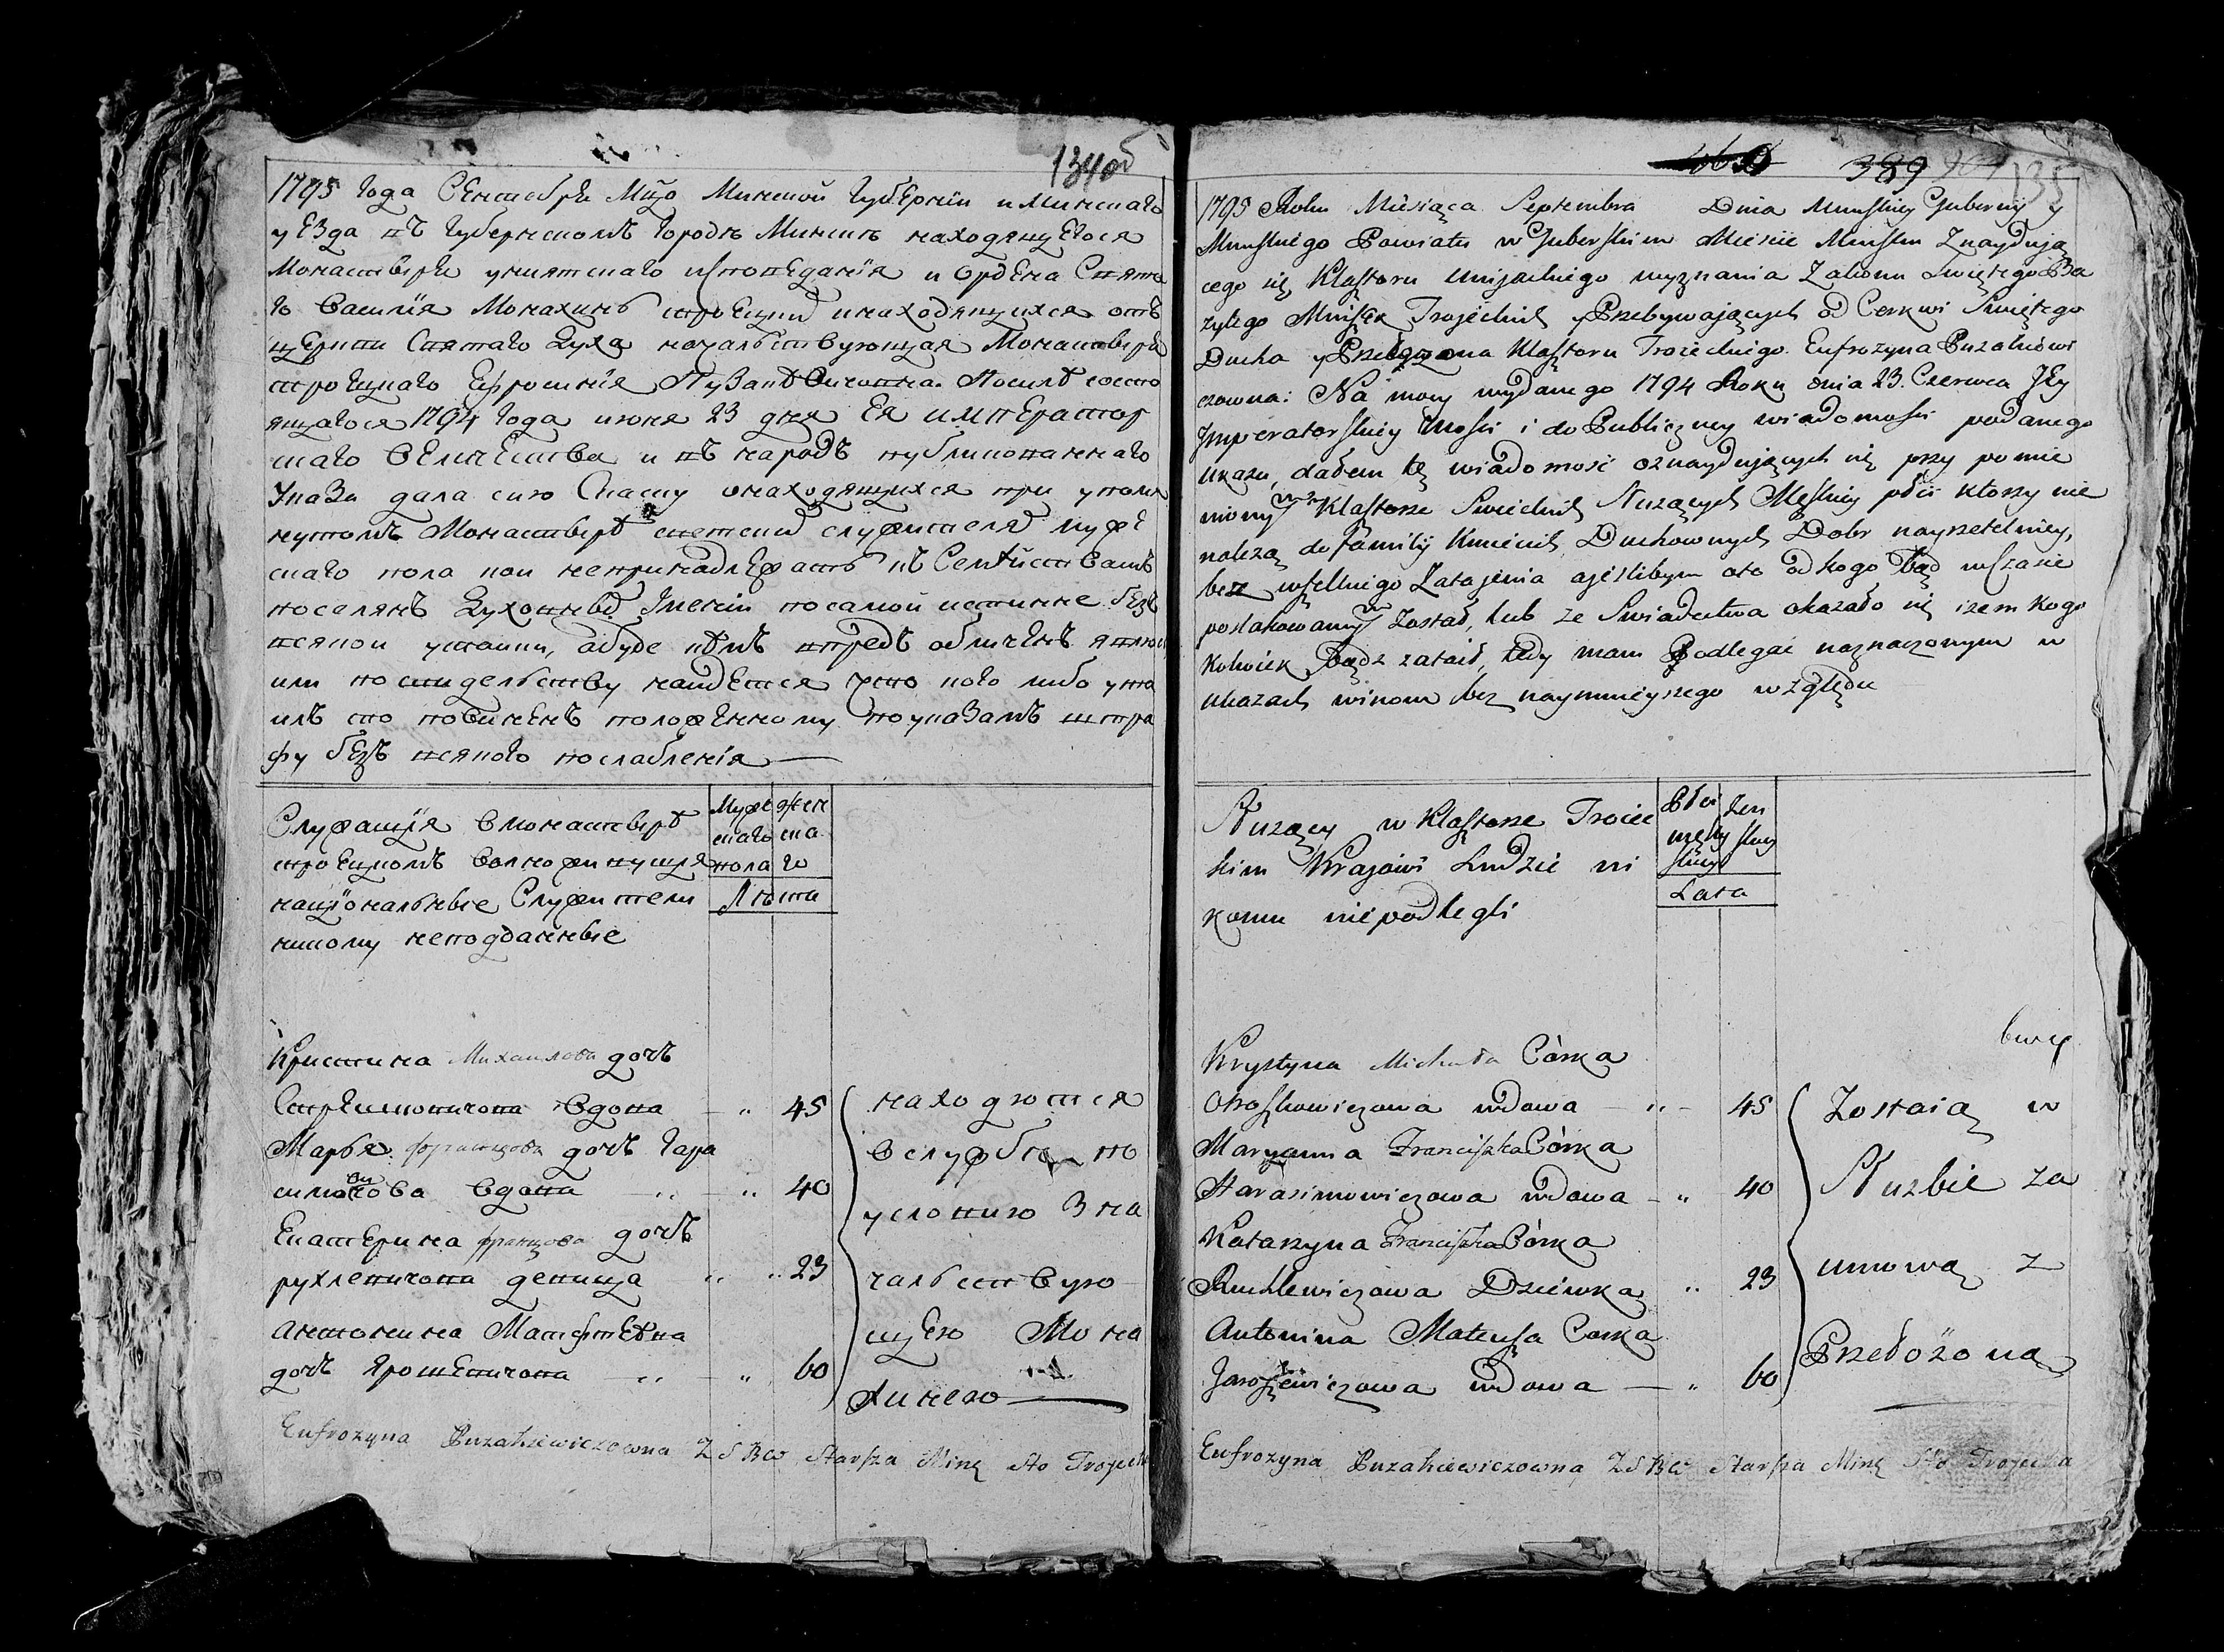 134об
1795 Года Сентебря Мцо Минской Губернии и Минскаго
уезда въ Губернскомъ Городе Минске находящегося
Монастыря униятскаго исповеданія и Ордена Свята
го Василія Монахинь троецкихъ находящихся отъ
церкви Святаго Духа начальствующая Монастыря
троецкаго Ефросинія После состо
ящагося 1794 года июня 23 дня Ея император
скаго Величества и въ народъ публикованнаго
Указа дала сию Скаску онаходящихся при упомя
нутомъ Монастыре светскихъ служителяхъ муже
скаго пола кои непринадлежатъ къ Семействамъ
поселянъ Духовныхъ Имений посамой истинне безъ
всякой утайки, абуде кемъ впредь обличенъ явлюсь
или по свидетельству найдется что кого либо ута
илъ то повиненъ положенному поуказамъ штра
фу безъ всякого послабленія
Служащія вмонастыре
троецкомъ волноживущія
націоналные Служители
никому неподданные
Муже скаго пола
жен ска го
Лета
Кристина Михаилова дочь
вдова " 45
Марья францова дочь Гара
симовичова вдова " " 40
Екатерина францова дочь
рухлевичова девица " " 23
антонина Матефтевна
дочь Ярошевичова " " 60
находятся
вслужбе по
условию зна
чальствую
щею Мона
хинею
Eufrozyna Puzakiewiczowna Z S B W Starsza Minę Sto Trojecka
389
135
1795 Roku Miesiąca Septembra Dnia Munskiey Gubernij y
Munskiego Powiatu w Guberskim Miescie Minsku Znaydują
cego się Klasztoru Unijackiego wyznania Zakonu Swiętego Ba
zylego Mniszek Trojeckich y Przebywających od Cerkwi Swiętego
Ducha y Przełożona Klasztoru Troieckiego Eufrozyna Puzakiewi
czowna: Na mocy wydanego 1794 Roku dnia 23. Czerwca Jey
Jmperatorskiey Mosci i do Publiczney wiadomosci podanego
ukazu, dałem tę wiadomość oznaydujących się przy pomie
nionym Klasztorze Swieckich Służących Męskiey płci ktorzy nie
należą do familij Kmiecich, Duchownych Dobr nayrzetelniey,
bez wszelkiego Zatajenia ajeslibym oto od kogo bądź w czasie
poszlakowanym Został, lub ze Swiadectwa okazało się iżem kogo
kolwiek bądz zataił, tedy mam Podlegać naznaczonym w
ukazach winom bez naymnieyszego względu
Służący w Klasztorze Troiec
kim Kraiowi Ludzie ni
komu niepodlegli
Płci męskiey
żen skiey
Lata
Krystyna Michała Córka
Oroszkowiczowa wdowa — " — 45
Maryanna Franciszka Córka
Harasimowiczowa wdowa — " 40
Katarzyna Franciszka Córka
Ruchlewiczowa Dziewka " 23
Antonina Mateusza Corka
Jaroszewiczowa wdowa — " 60
Zostaią w
Służbie za
umową z
Przełożoną
Eufrozyna Puzakiewiczowna Z S B W Starsza Minę Sto Trojecka